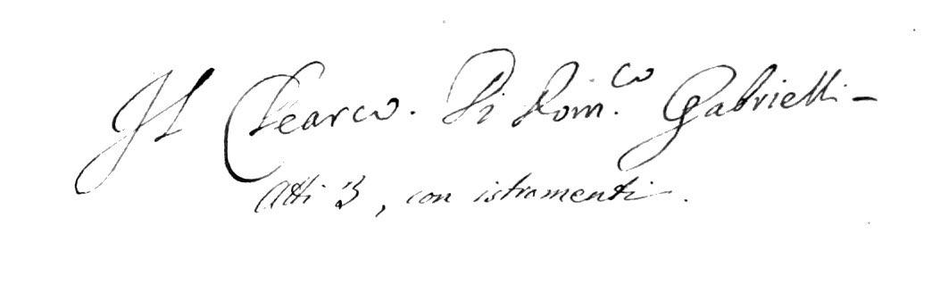 Il Clearco. Di Dom.co Gabrielli -
Atti 3, con istromenti.